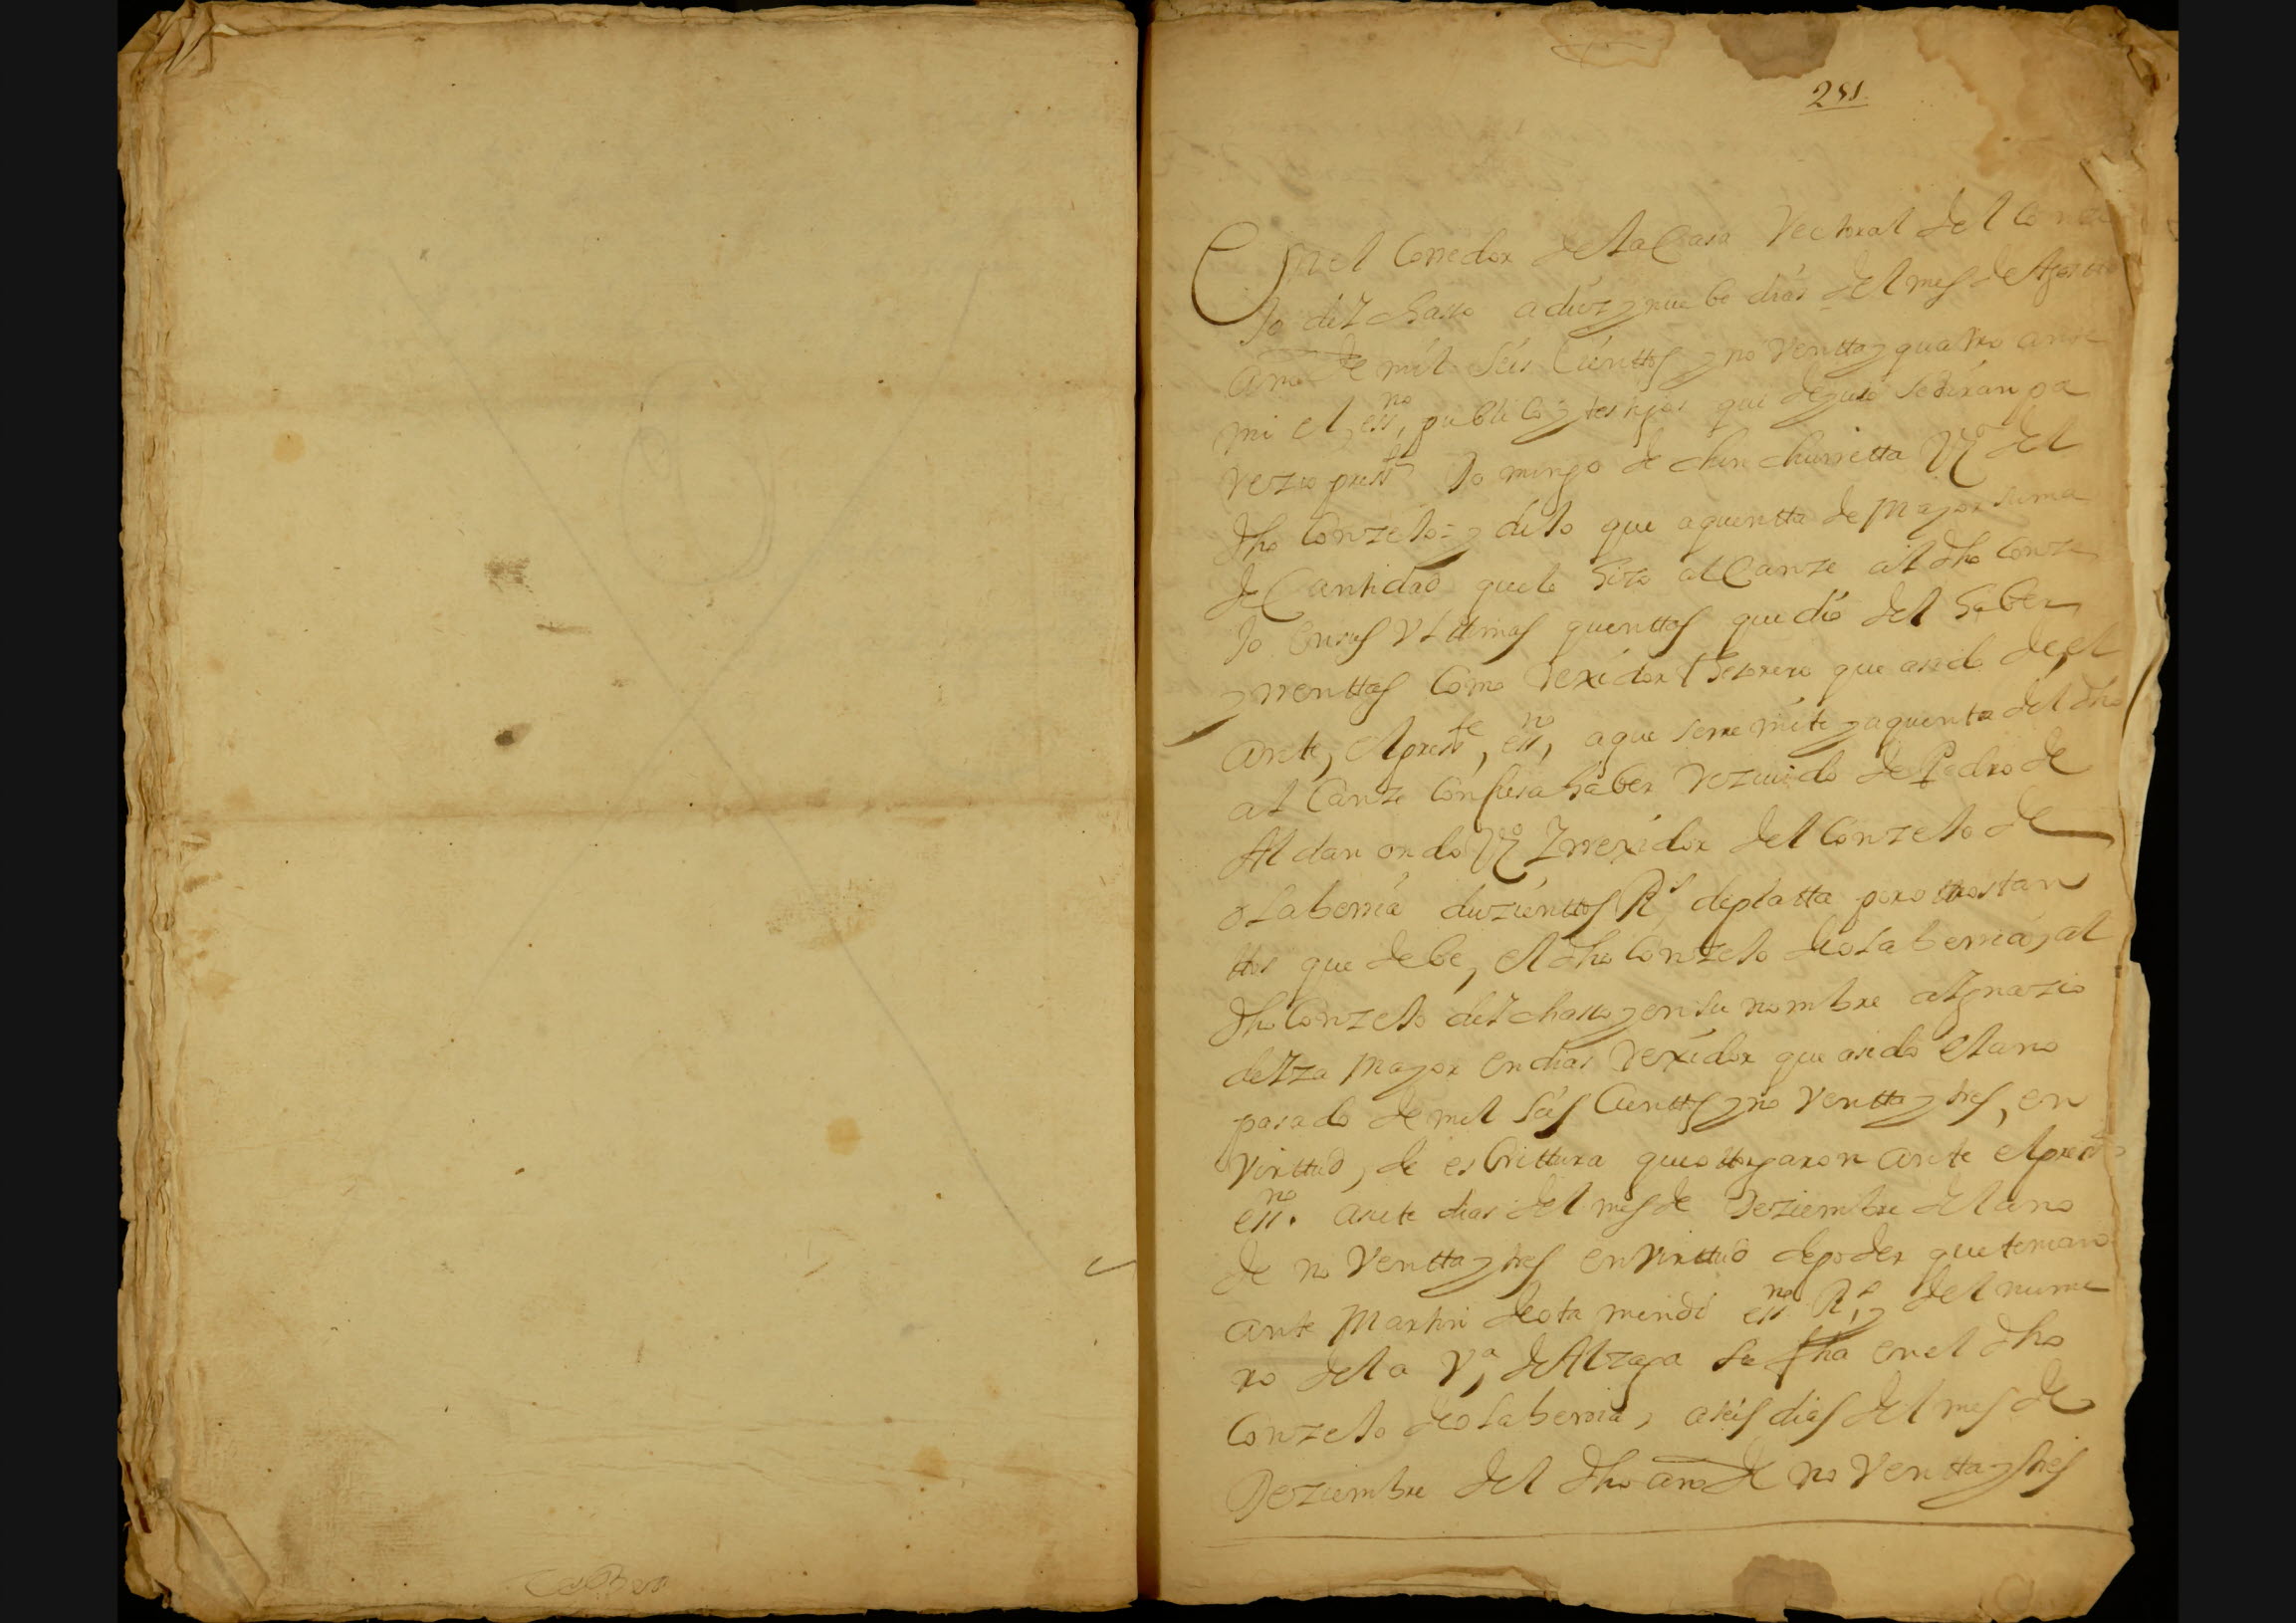 251
En el Corredor de la Casa Rectoral del Conze
Jo de Ychasso a diez y nuebe dias del mes de Agosto
año de mil seis Cienttos y noventta y quattro ante
mi el essno, publico y testigos que de yuso sediran pa
rezio presste Domingo de chinchurretta Vº del
dho Conzejo = y dijo que a quentta de mayor suma
de Cantidad que le hizo alCanze al dho Conze
Jo en sus Ulttimas quenttas que dio del haber
y renttas Como rexidor thesorero que a sido de el
ante, el presste, essno, a que se rremite y a quenta del dho
alCanze Confiesa haber rezuido de Pedro de
Aldanondo Vº Y rrexidor del Conzejo de
olaberria duzienttos Rs de platta por otros tan
ttos que debe, el dho Conzejo de olaberria, al
dho Conzejo de Ychasso y en su nombre a Ygnazio
de Yza mayor en dias rexidor que a sido el ano
pasado de mil seis Cienttos y noventta y tres, en
virttud, de esCrittura que ottorgaron ante el presste
essno. a siete dias del mes de Deziembre del ano
de noventta y tres en virttud de poder que tenian
ante Martin de ota mendi essno Rl, y del nume
ro de la Va, de Alzaga su fha en el dho
Conzejo de olaberria, a seis dias del mes de
Deziembre del dho ano de noventta y tres